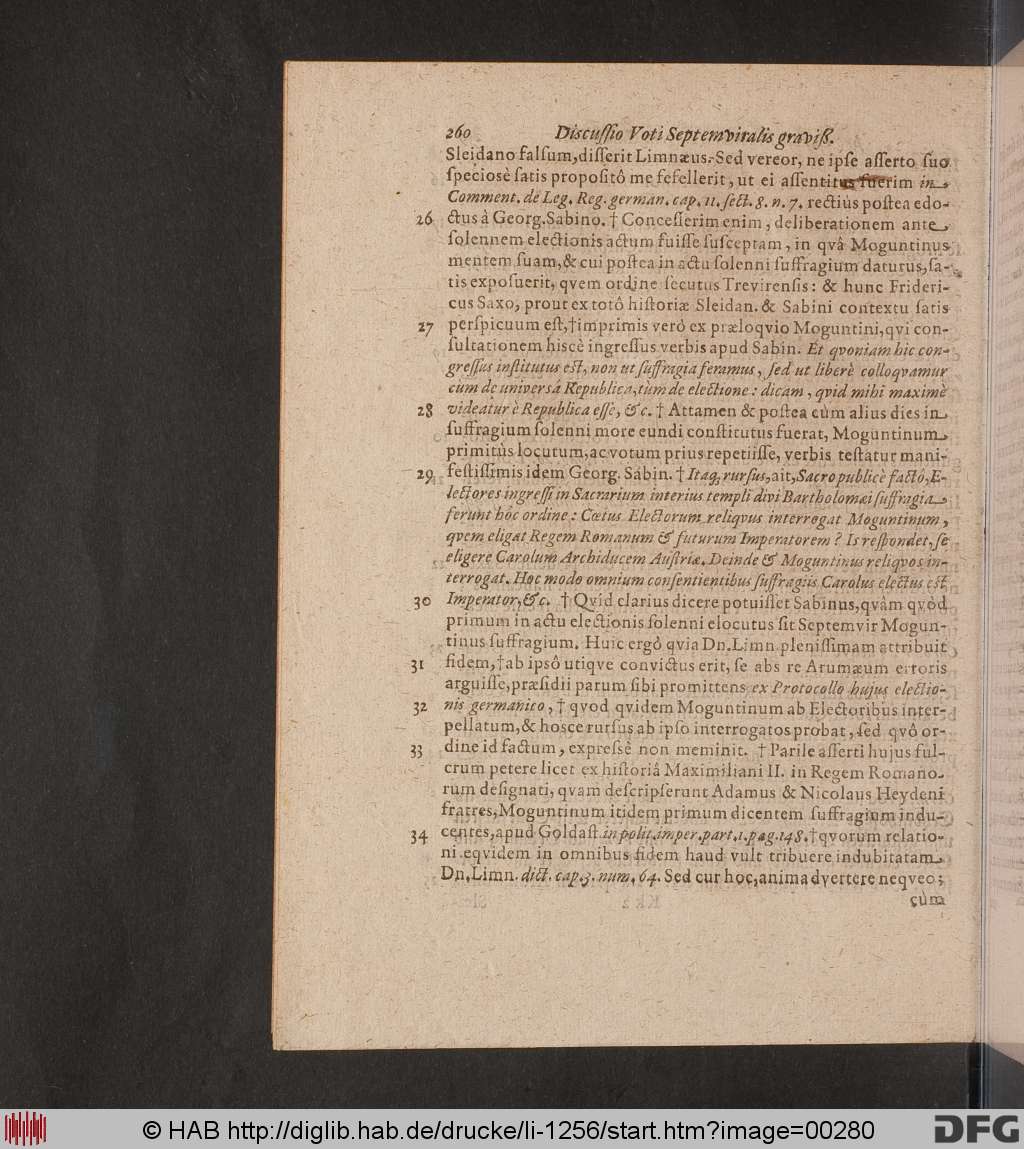 260 Discuſſio Voti Septemviralis graviſſ.
Sleidano falſum, diſſerit Limnæus. Sed vereor, ne ipſe aſſerto ſuo
ſpecioſè ſatis propoſitô me fefellerit, ut ei aſſentitus fuerim in
Comment. de Leg. Reg. german. cap. 11. ſect. 8. n. 7. rectiùs poſtea edo-
26 ctus à Georg. Sabino. † Conceſſerim enim, deliberationem ante
ſolennem electionis actum fuiſſe ſuſceptam, in qvâ Moguntinus
mentem ſuam, & cui poſtea in actu ſolenni ſuffragium daturus, ſa-
tis expoſuerit, qvem ordine ſecutus Trevirenſis: & hunc Frideri-
cus Saxo, prout ex totô hiſtoriæ Sleidan. & Sabini contextu ſatis
27 perſpicuum eſt, † imprimis verò ex præloqvio Moguntini, qvi con-
ſultationem hiscè ingreſſus verbis apud Sabin. Et qvoniam hic con-
greſſus inſtitutus eſt, non ut ſuffragia feramus, ſed ut liberè colloqvamur
cum de universâ Republica, tùm de electione: dicam, qvid mihi maximè
28 videatur è Republica eſſe, &c. † Attamen & poſtea cùm alius dies in
ſuffragium ſolenni more eundi conſtitutus fuerat, Moguntinum
primitùs locutum, ac votum prius repetiiſſe, verbis teſtatur mani-
29 feſtiſſimis idem Georg. Sabin. † Itaq; rurſus, ait, Sacro publicè factô, E-
lectores ingreſſi in Sacrarium interius templi divi Bartholomæi ſuffragia
ferunt hôc ordine: Cœtus Electorum reliqvus interrogat Moguntinum,
qvem eligat Regem Romanum & futurum Imperatorem? Is reſpondet, ſe
eligere Carolum Archiducem Auſtriæ. Deinde & Moguntinus reliqvos in-
terrogat. Hoc modo omnium conſentientibus ſuffragiis Carolus electus eſt
30 Imperator, &c. † Qvid clarius dicere potuiſſet Sabinus, qvàm qvòd
primum in actu electionis ſolenni elocutus ſit Septemvir Mogun-
tinus ſuffragium. Huic ergò qvia Dn. Limn. pleniſſimam attribuit
31 fidem, † ab ipsô utiqve convictus erit, ſe abs re Arumæum erroris
arguiſſe, præſidii parum ſibi promittens ex Protocollo hujus electio-
32 nis germanico, † qvod qvidem Moguntinum ab Electoribus inter-
pellatum, & hosce rurſus ab ipſo interrogatos probat, ſed qvô or-
33 dine id factum, expreſsè non meminit. † Parile aſſerti hujus ful-
crum petere licet ex hiſtoriâ Maximiliani II. in Regem Romano-
rum deſignati, qvam deſcripſerunt Adamus & Nicolaus Heydeni
fratres, Moguntinum itidem primum dicentem ſuffragium indu-
34 centes, apud Goldaſt. in polit. imper. part. 1. pag. 148. † qvorum relatio-
ni eqvidem in omnibus fidem haud vult tribuere indubitatam
Dn. Limn. dict. cap. 3. num. 64. Sed cur hoc, animadvertere neqveo;
cùm
© HAB http://diglib.hab.de/drucke/li-1256/start.htm?image=00280
DFG